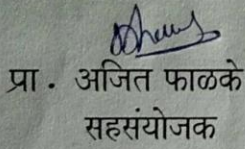 प्रा. अजित फाळके
सहसंयोजक